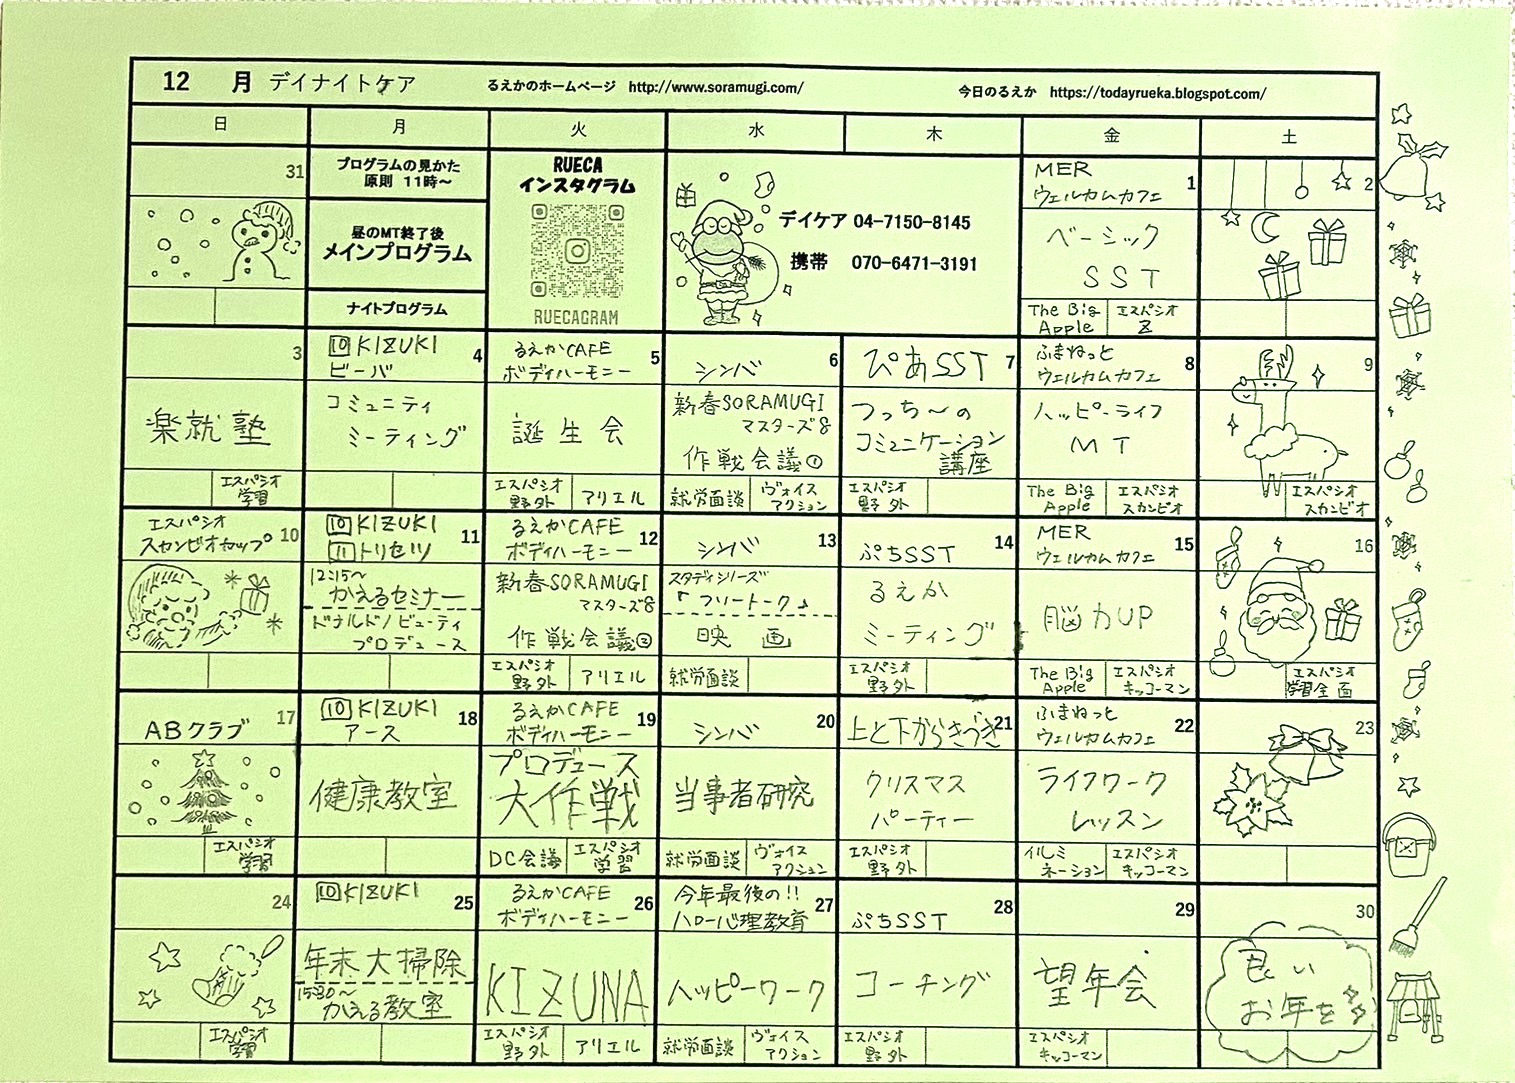 12 月 デイナイトケア るえかのホームページ http://www.soramugi.com/ 今日のるえか https://todayrueka.blogspot.com/
日 月 火 水 木 金 土
31
プログラムの見かた
原則 11時～
昼のMT終了後
メインプログラム
ナイトプログラム
RUECA
インスタグラム
RUECAGRAM
デイケア 04-7150-8145
携帯 070-6471-3191
MER 1
ウェルカムカフェ
ベーシック
SST
The Big
Apple
エスパシオ
Z
2
3
楽就塾
エスパシオ
学習
10 KIZUKI 4
ビーバ
コミュニティ
ミーティング
るえかCAFE 5
ボディハーモニー
誕生会
エスパシオ
野外
アリエル
シンバ 6
新春SORAMUGI
マスターズ8
作戦会議①
就労面談
ヴォイス
アクション
ぴあSST 7
つっち～の
コミュニケーション
講座
エスパシオ
野外
ふまねっと 8
ウェルカムカフェ
ハッピーライフ
MT
The Big
Apple
エスパシオ
スカンビオ
9
エスパシオ
スカンビオ
エスパシオ
スカンビオカップ 10
10 KIZUKI 11
11 トリセツ
12:15～
かえるセミナー
ドナルド/ビューティ
プロデュース
るえかCAFE 12
ボディハーモニー
新春SORAMUGI
マスターズ8
作戦会議②
エスパシオ
野外
アリエル
シンバ 13
スタディシリーズ
「フリートーク」
映画
就労面談
ぷちSST 14
るえか
ミーティング
エスパシオ
野外
MER 15
ウェルカムカフェ
脳力UP
The Big
Apple
エスパシオ
キッコーマン
16
エスパシオ
学習全面
ABクラブ 17
エスパシオ
学習
10 KIZUKI 18
アース
健康教室
るえかCAFE 19
ボディハーモニー
プロデュース
大作戦
DC会議
エスパシオ
学習
シンバ 20
当事者研究
就労面談
ヴォイス
アクション
上と下からきづき 21
クリスマス
パーティー
エスパシオ
野外
ふまねっと 22
ウェルカムカフェ
ライフワーク
レッスン
イルミ
ネーション
エスパシオ
キッコーマン
23
24
エスパシオ
学習
10 KIZUKI 25
年末大掃除
15:30～
かえる教室
るえかCAFE 26
ボディハーモニー
KIZUNA
エスパシオ
野外
アリエル
今年最後の!! 27
ハロー心理教育
ハッピーワーク
就労面談
ヴォイス
アクション
ぷちSST 28
コーチング
エスパシオ
野外
29
望年会
エスパシオ
キッコーマン
30
良い
お年を